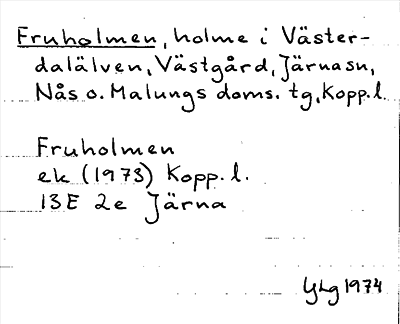 Fruholmen, holme i Väster-
dalälven, Västgård, Järna sn,
Nås o. Malungs doms. tg, Kopp. l.
Fruholmen
ek (1973) Kopp. l.
13E 2e Järna
YLg 1974